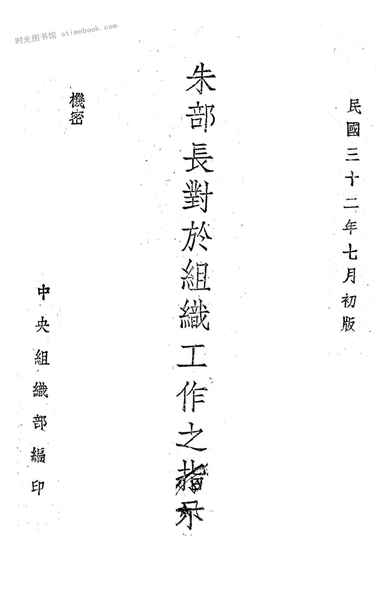 时光图书馆 otimebook.com
民國三十二年七月初版
朱部長對於組織工作之指示
機密
中央組織部編印